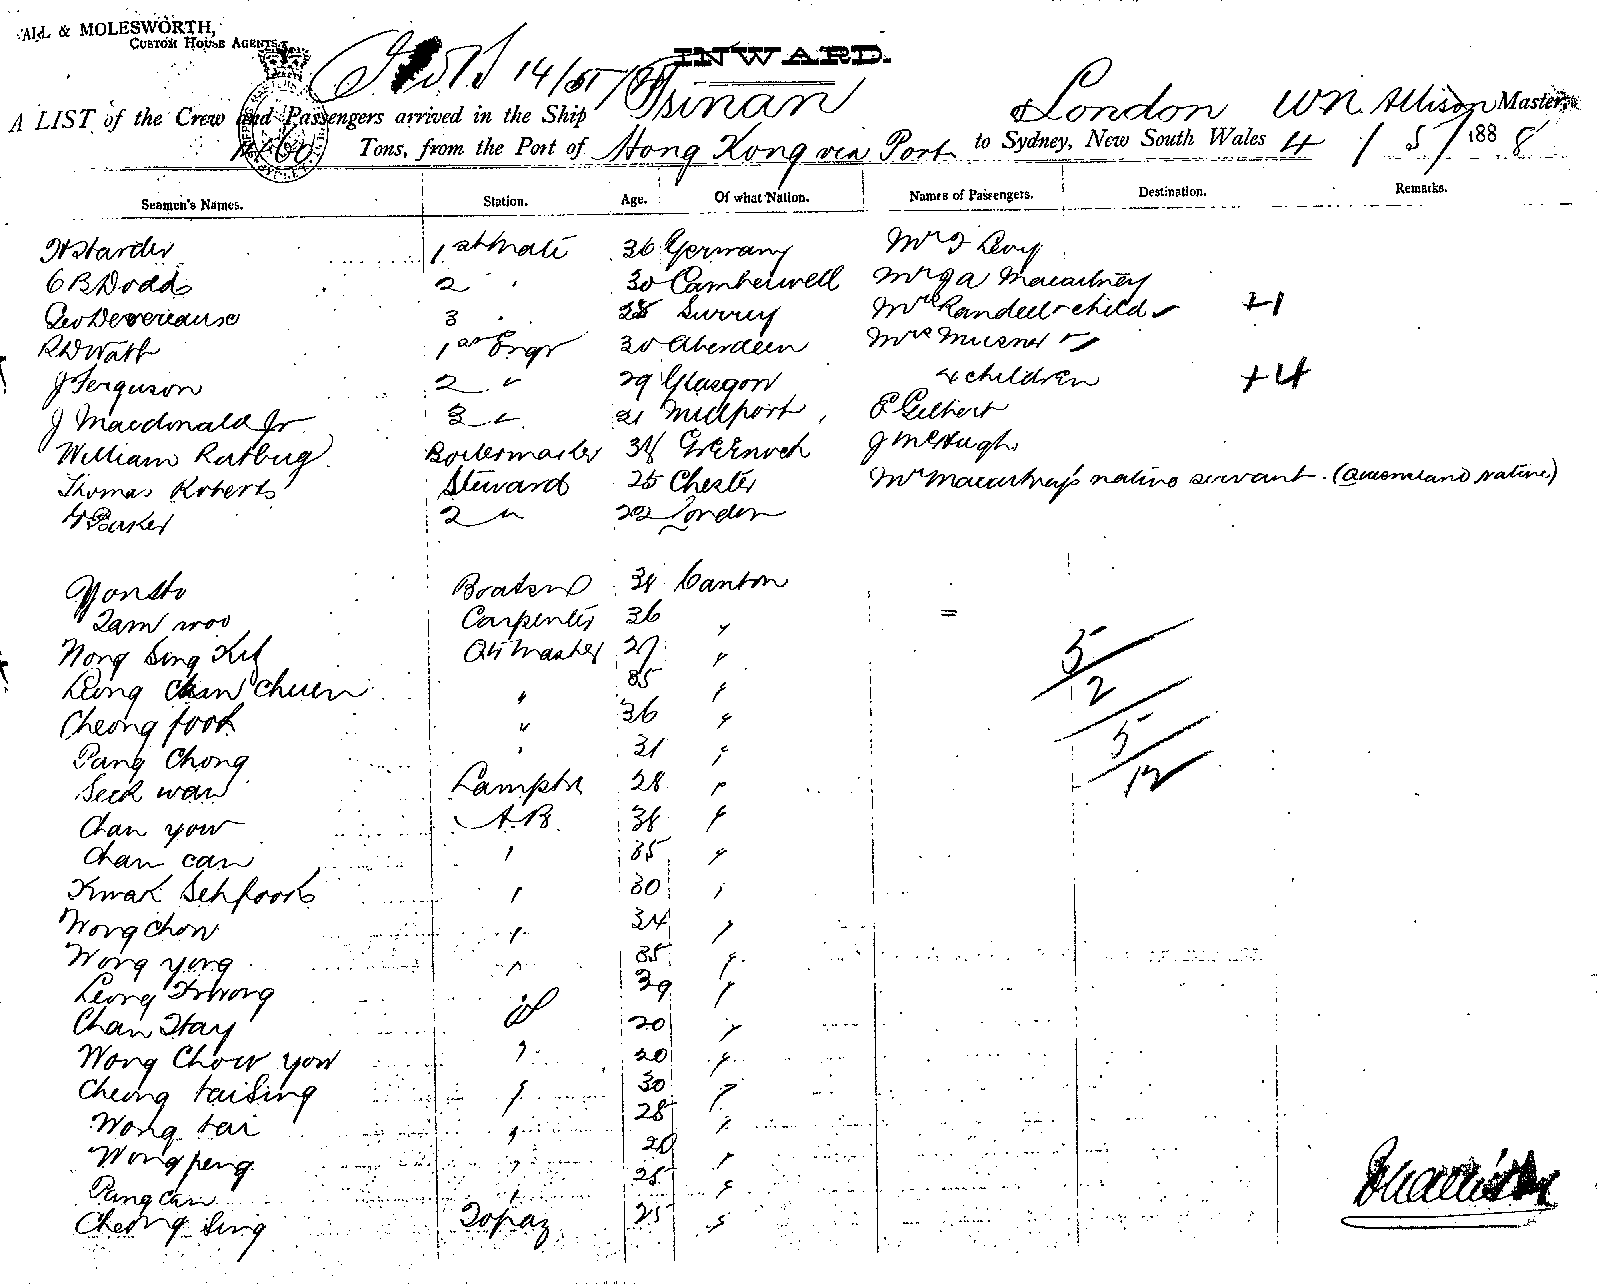 ALL & MOLESWORTH,
CUSTOM HOUSE AGENTS,
INWARD.
14/5/88
A LIST of the Crew and Passengers arrived in the Ship Tsinan of London W N Allison Master,
1460 Tons, from the Port of Hong Kong via Port to Sydney, New South Wales 4 / 5 / 1888
Seamen's Names. Station. Age. Of what Nation. Names of Passengers. Destination. Remarks.
H Harder 1st Mate 36 Germany Mr I Levy
C B Dodds 2 " 30 Camberwell Mr J A Macartney
Geo Devereause 3 " 28 Surrey Mrs Randell & child +1
R D Watt 1st Engr 30 Aberdeen Mrs
J Ferguson 2 " 29 Glasgow 4 children +4
J Macdonald Jr 3 " 21 Millport P Gilbert
William Boilermaker 34 Greenock J McHugh
Thomas Roberts Steward 25 Chester Mr Macartney's native servant. (Queensland Native)
H Parker 2 " 22 London
Boatswd 34 Canton
Tam woo Carpenter 36 "
Wong Sing Kit Qtr Master 27 "
Leong Chan Chuen " 35 "
Cheong fook " 36 "
Pang Chong " 31 "
Seck wan Lamptr 28 "
Chan yow A.B. 38 "
Chan can " 35 "
Kwak Seh fook " 30 "
Wong chow " 34 "
Wong yong " 35 "
Leong Kwong 39 "
Chan Hay 20 "
Wong Chow yow " 20 "
Cheong tai Sing " 30 "
Wong tai " 28 "
Wong peng " 20 "
Pang can " 25 "
Cheong Sing Topaz 25 "
5/2
5/12